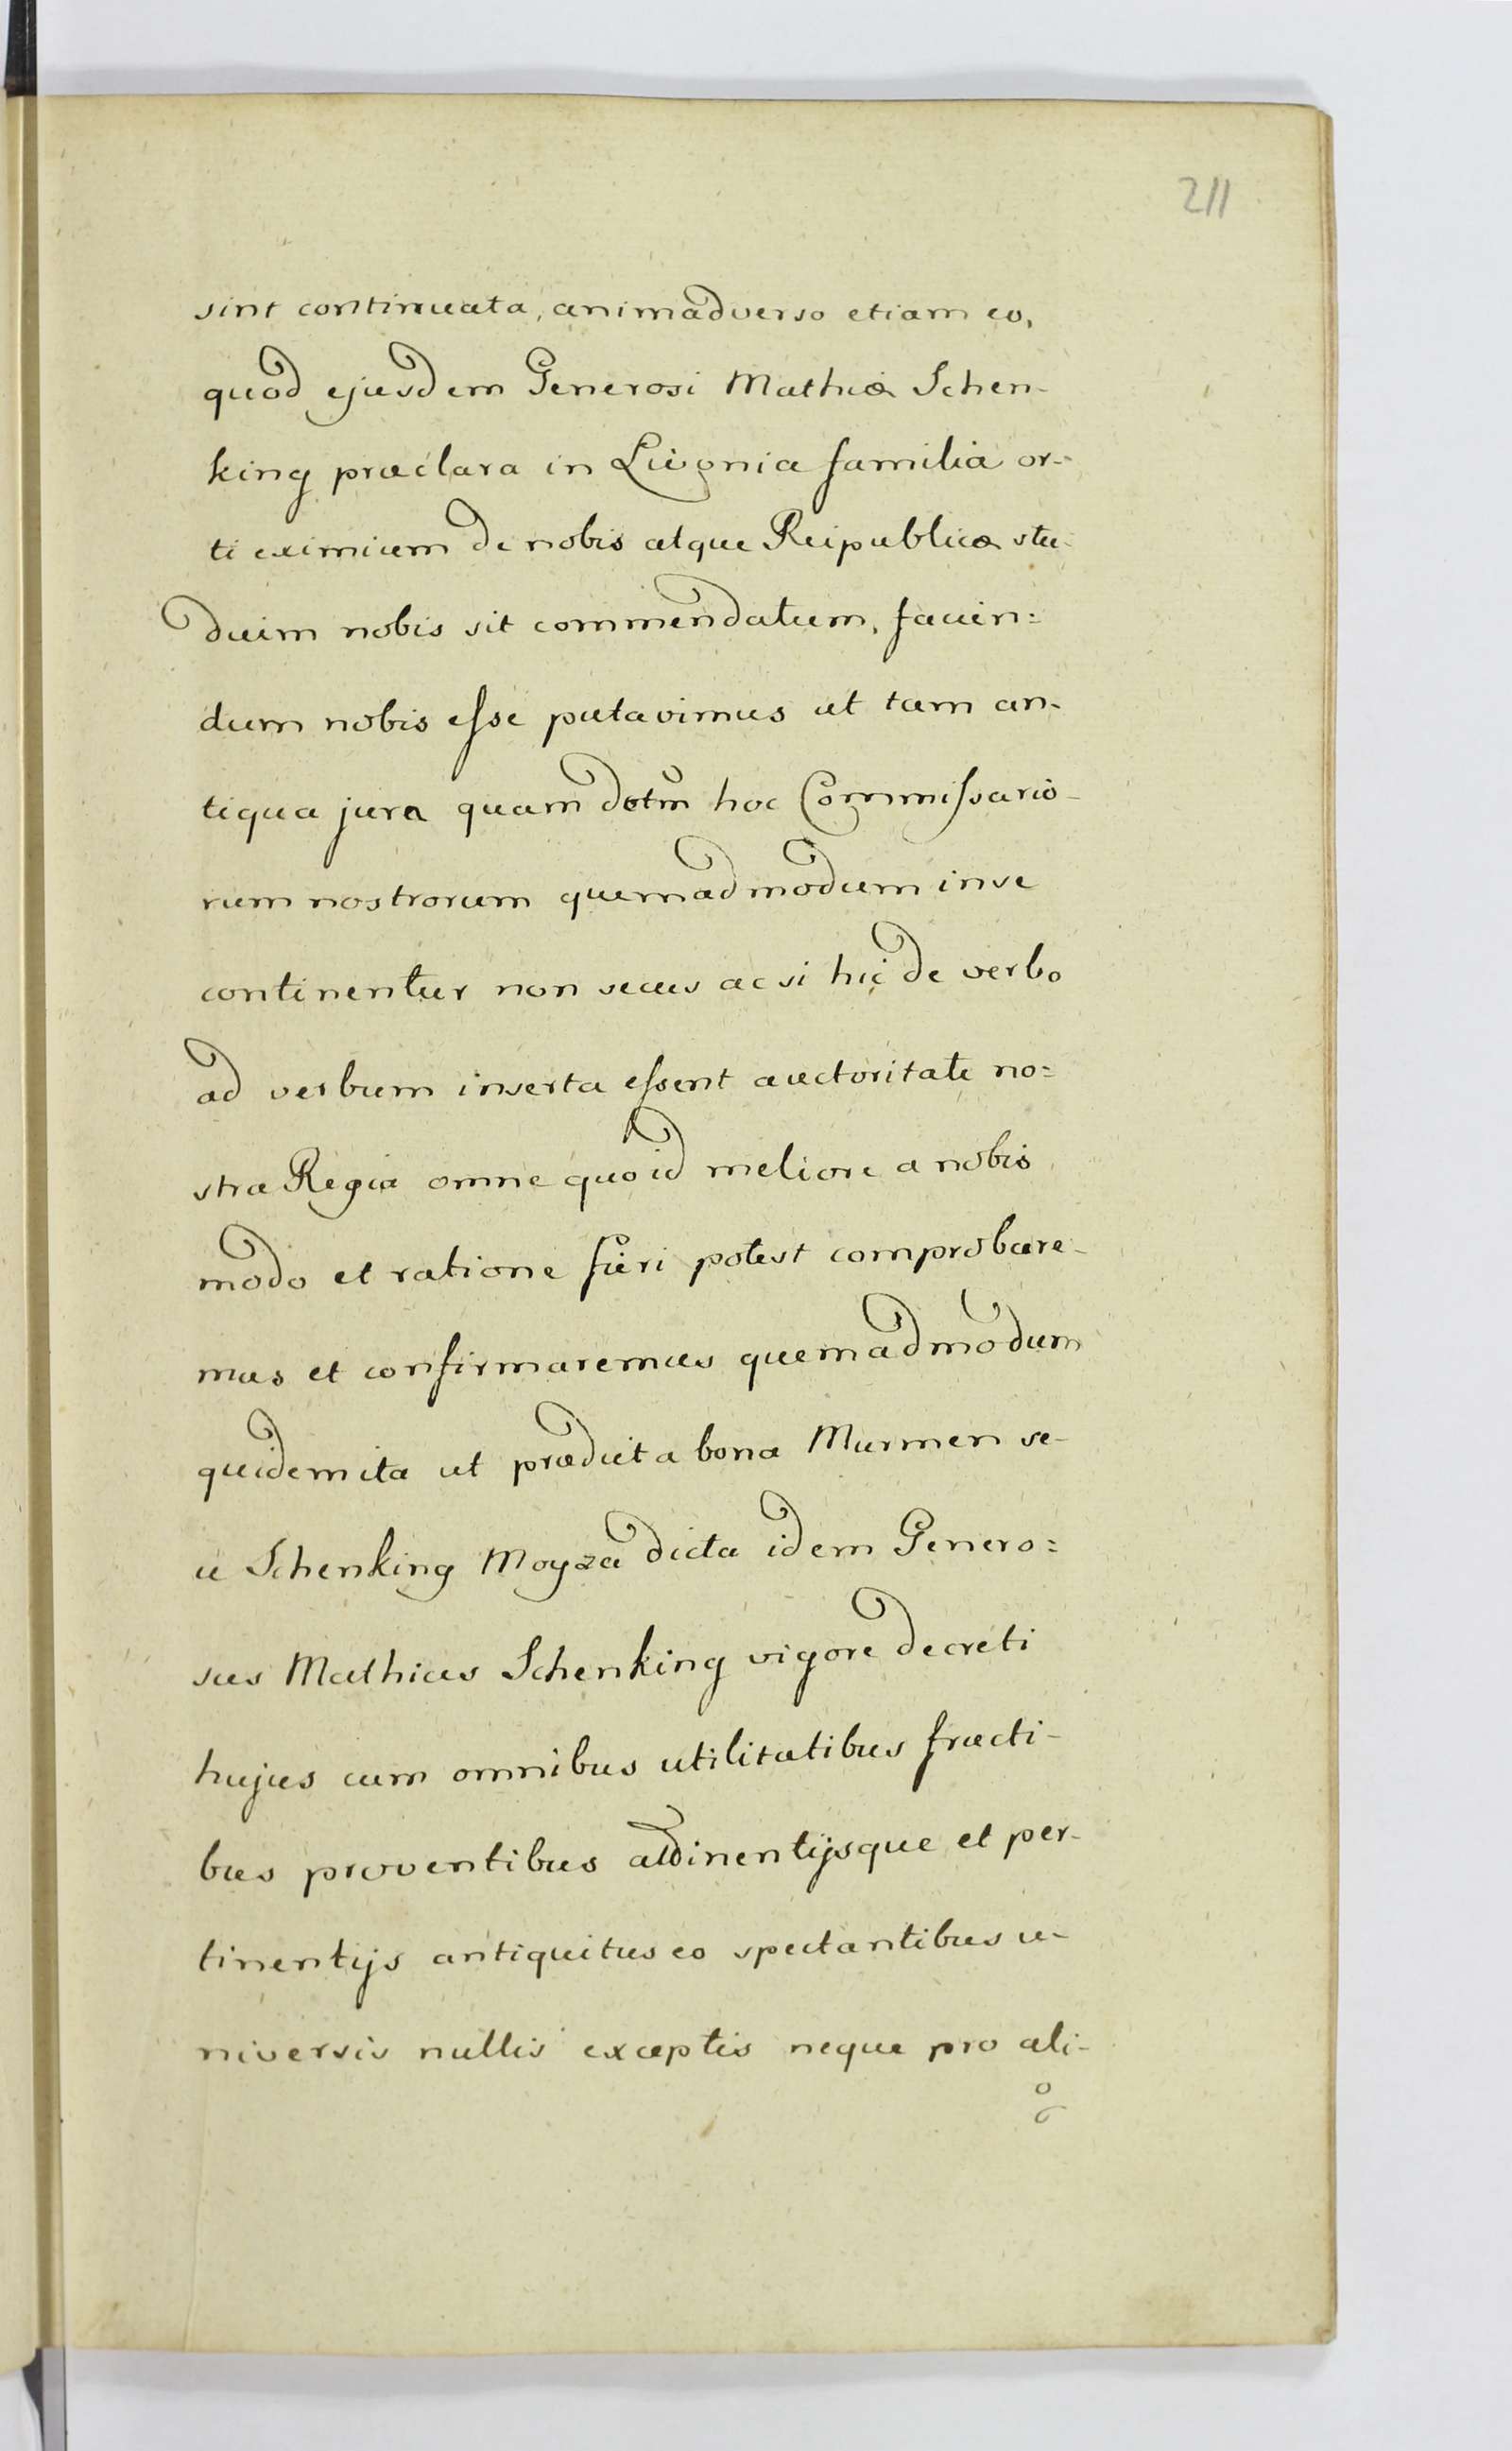 211
sint continuata, animadverso etiam eo,
quod ejusdem Generosi Mathiæ Schen-
king præclara in Livonia familia or-
ti eximium de nobis atque Reipublicæ stu-
duim nobis sit commendatum, fauen=
dum nobis esse putavimus ut tam an-
tiqua jura quam dctm hoc Commissario-
rum nostrorum quemadmodum in se
continentur non secus ac si hic de verbo
ad verbum inserta essent auctoritate no=
stra Regia omne quo id meliore a nobis
modo et ratione fieri potest comprobare-
mus et confirmaremus quemadmodum
quidem ita ut prædicta bona Murmen se-
u Schenking Moyza dicta idem Genero=
sus Mathias Schenking vigore decreti
hujus cum omnibus utilitatibus fructi-
bus proventibus attinentijsque et per-
tinentijs antiquitus eo spectantibus u-
niversis nullis exceptis neque pro ali-